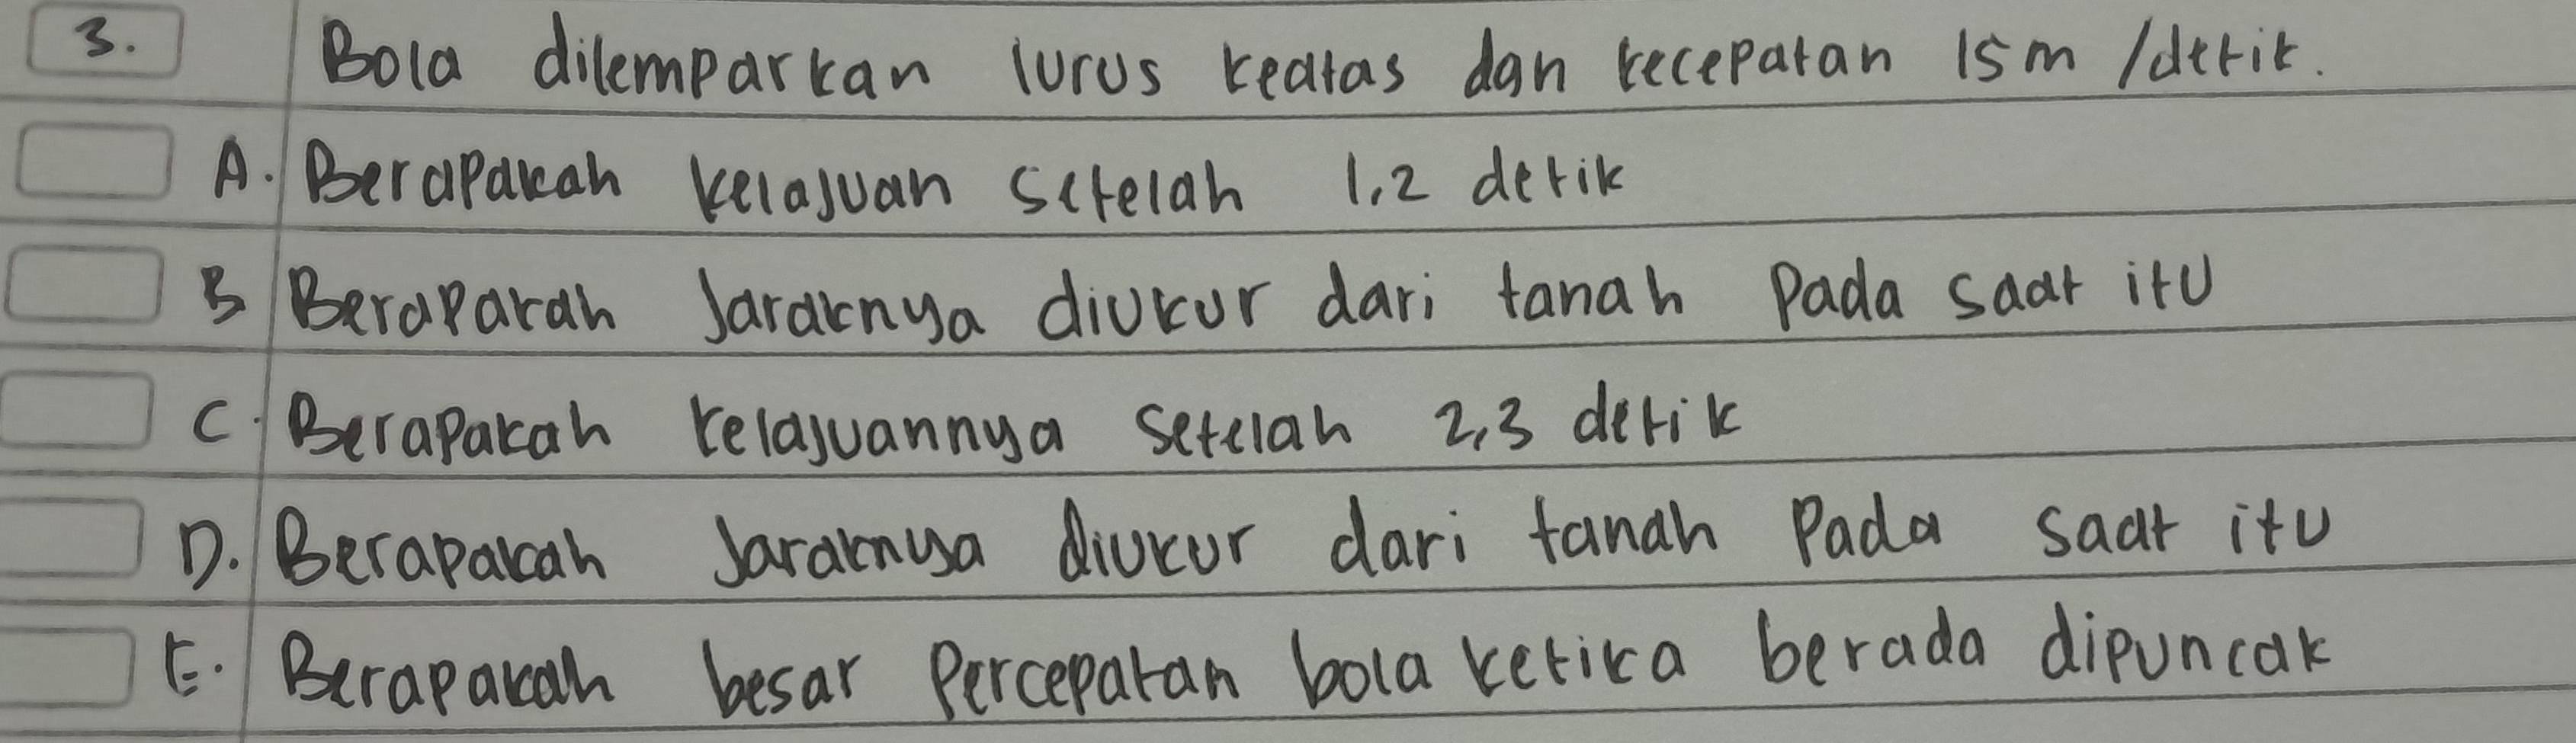 3. Bola dilemparkan lurus keatas dan kecepatan 15 m /detik.
A. Berapakah kelajuan setelah 1,2 detik
B Berapakah Jaraknya diukur dari tanah Pada saat itu
C. Berapakah kelajuannya setelah 2,3 detik
D. Berapakah Jaraknya diukur dari tanah Pada saat itu
E. Berapakah besar Percepatan bola ketika berada dipuncak